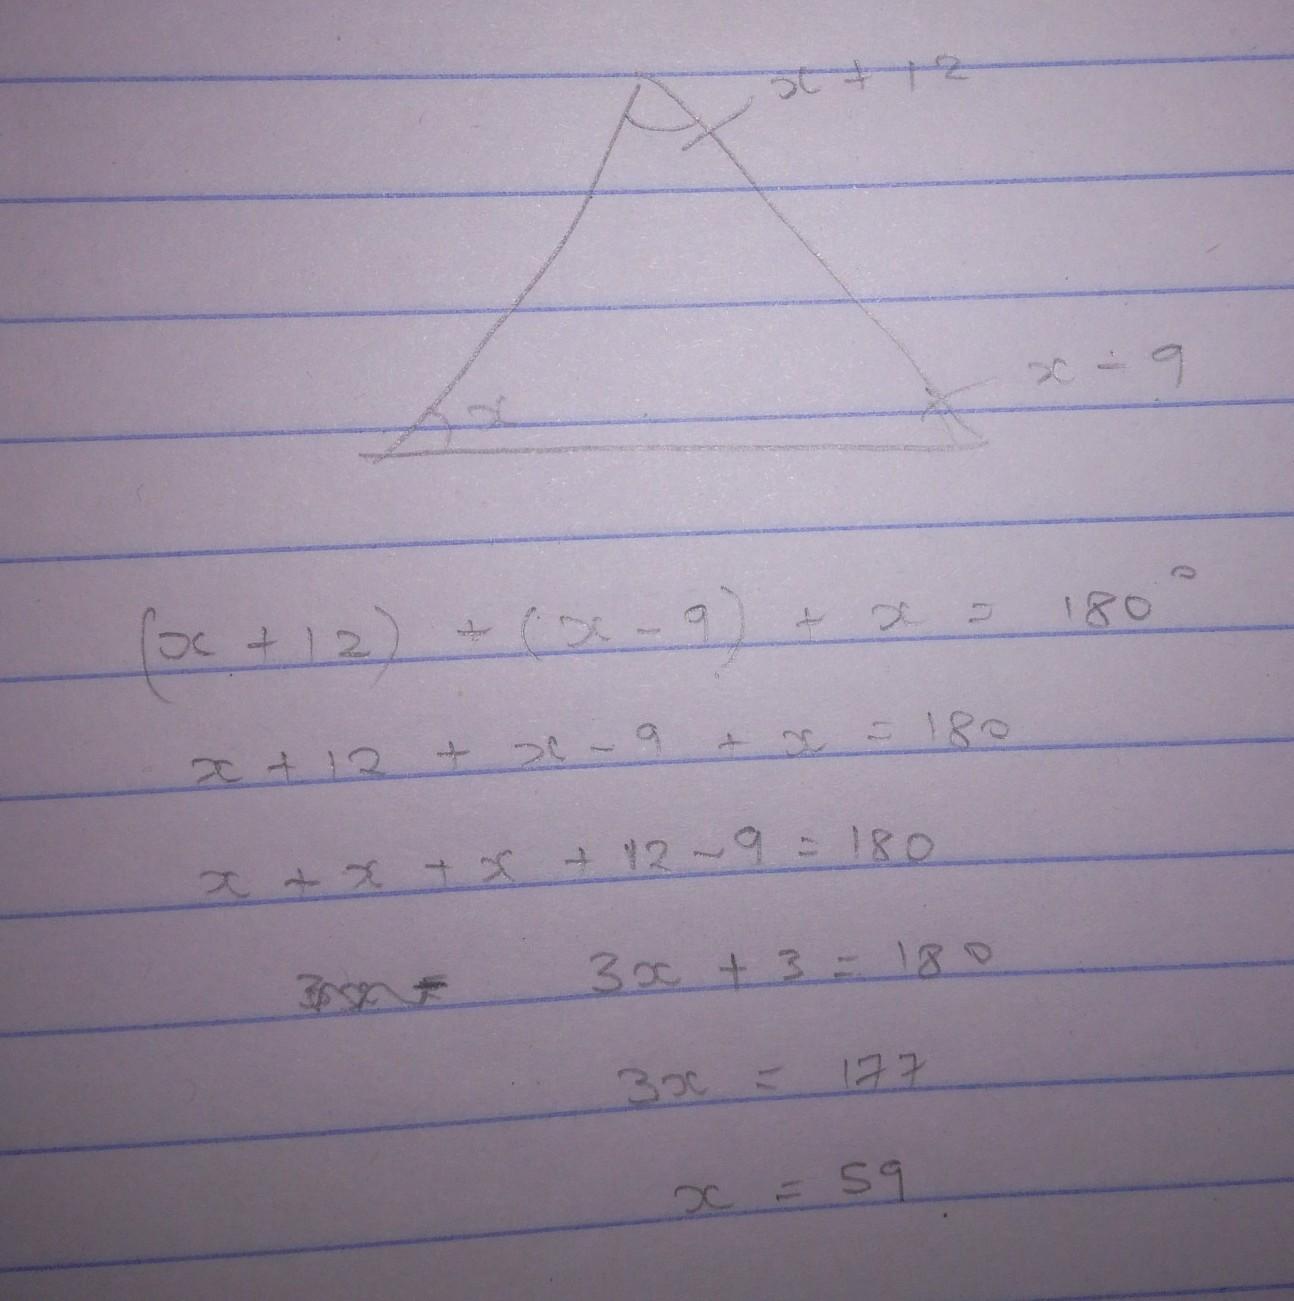 x + 12
x - 9
x
(x + 12) + (x - 9) + x = 180°
x + 12 + x - 9 + x = 180
x + x + x + 12 - 9 = 180
3x + 3 = 180
3x = 177
x = 59